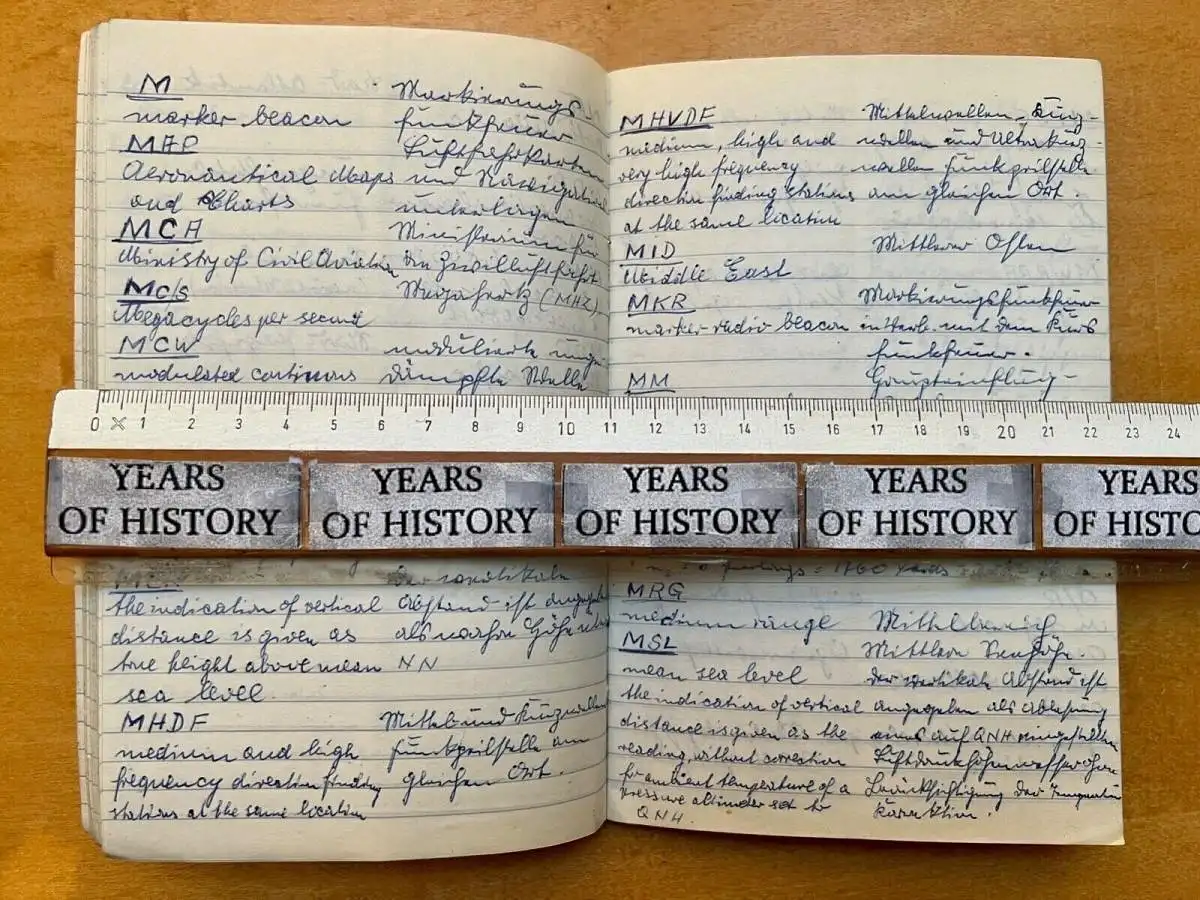 M
Markierungs
marker beacon
funkfeuer
MAP
Luftfahrtkarten
Aeronautical Maps
und Navigations
and Charts
unterlagen
MCA
Ministerium für
Ministry of Civil Aviation
die Zivilluftfahrt
Mc/s
Megahertz (MHZ)
Megacycles per second
MCW
modulierte unge-
modulated continuous
dämpfte Welle
the indication of vertical
Abstand ist angegeben
distance is given as
als wahre Höhe über
true height above mean
NN
sea level.
MHDF
Mittel und Kurzwellen
medium and high
funkpeilstelle am
frequency direction finding
gleichen Ort.
stations at the same location
MHVDF
Mittelwellen, Kurz-
medium, high and
wellen und Ultrakurz-
very high frequency
wellen funkpeilstelle
direction finding stations
am gleichen Ort.
at the same location
MID
Mittlerer Osten
Middle East
MKR
Markierungsfunkfeuer
marker radio beacon
in Verb. mit dem Kurs
funkfeuer.
MM
Haupteinflug-
0 1 2 3 4 5 6 7 8 9 10 11 12 13 14 15 16 17 18 19 20 21 22 23 24
YEARS
OF HISTORY
YEARS
OF HISTORY
YEARS
OF HISTORY
YEARS
OF HISTORY
YEARS
OF HISTO
= 1760 yards
MRG
medium range
Mittelbereich
MSL
Mittlere Seehöhe.
mean sea level
der vertikale Abstand ist
the indication of vertical
angegeben als Ablesung
distance is given as the
eines auf QNH eingestellten
reading, without correction
Luftdruckhöhenmessers ohne
for ambient temperature of a
Berücksichtigung der Temperatur
pressure altimeter set to
Korrektion.
QNH.